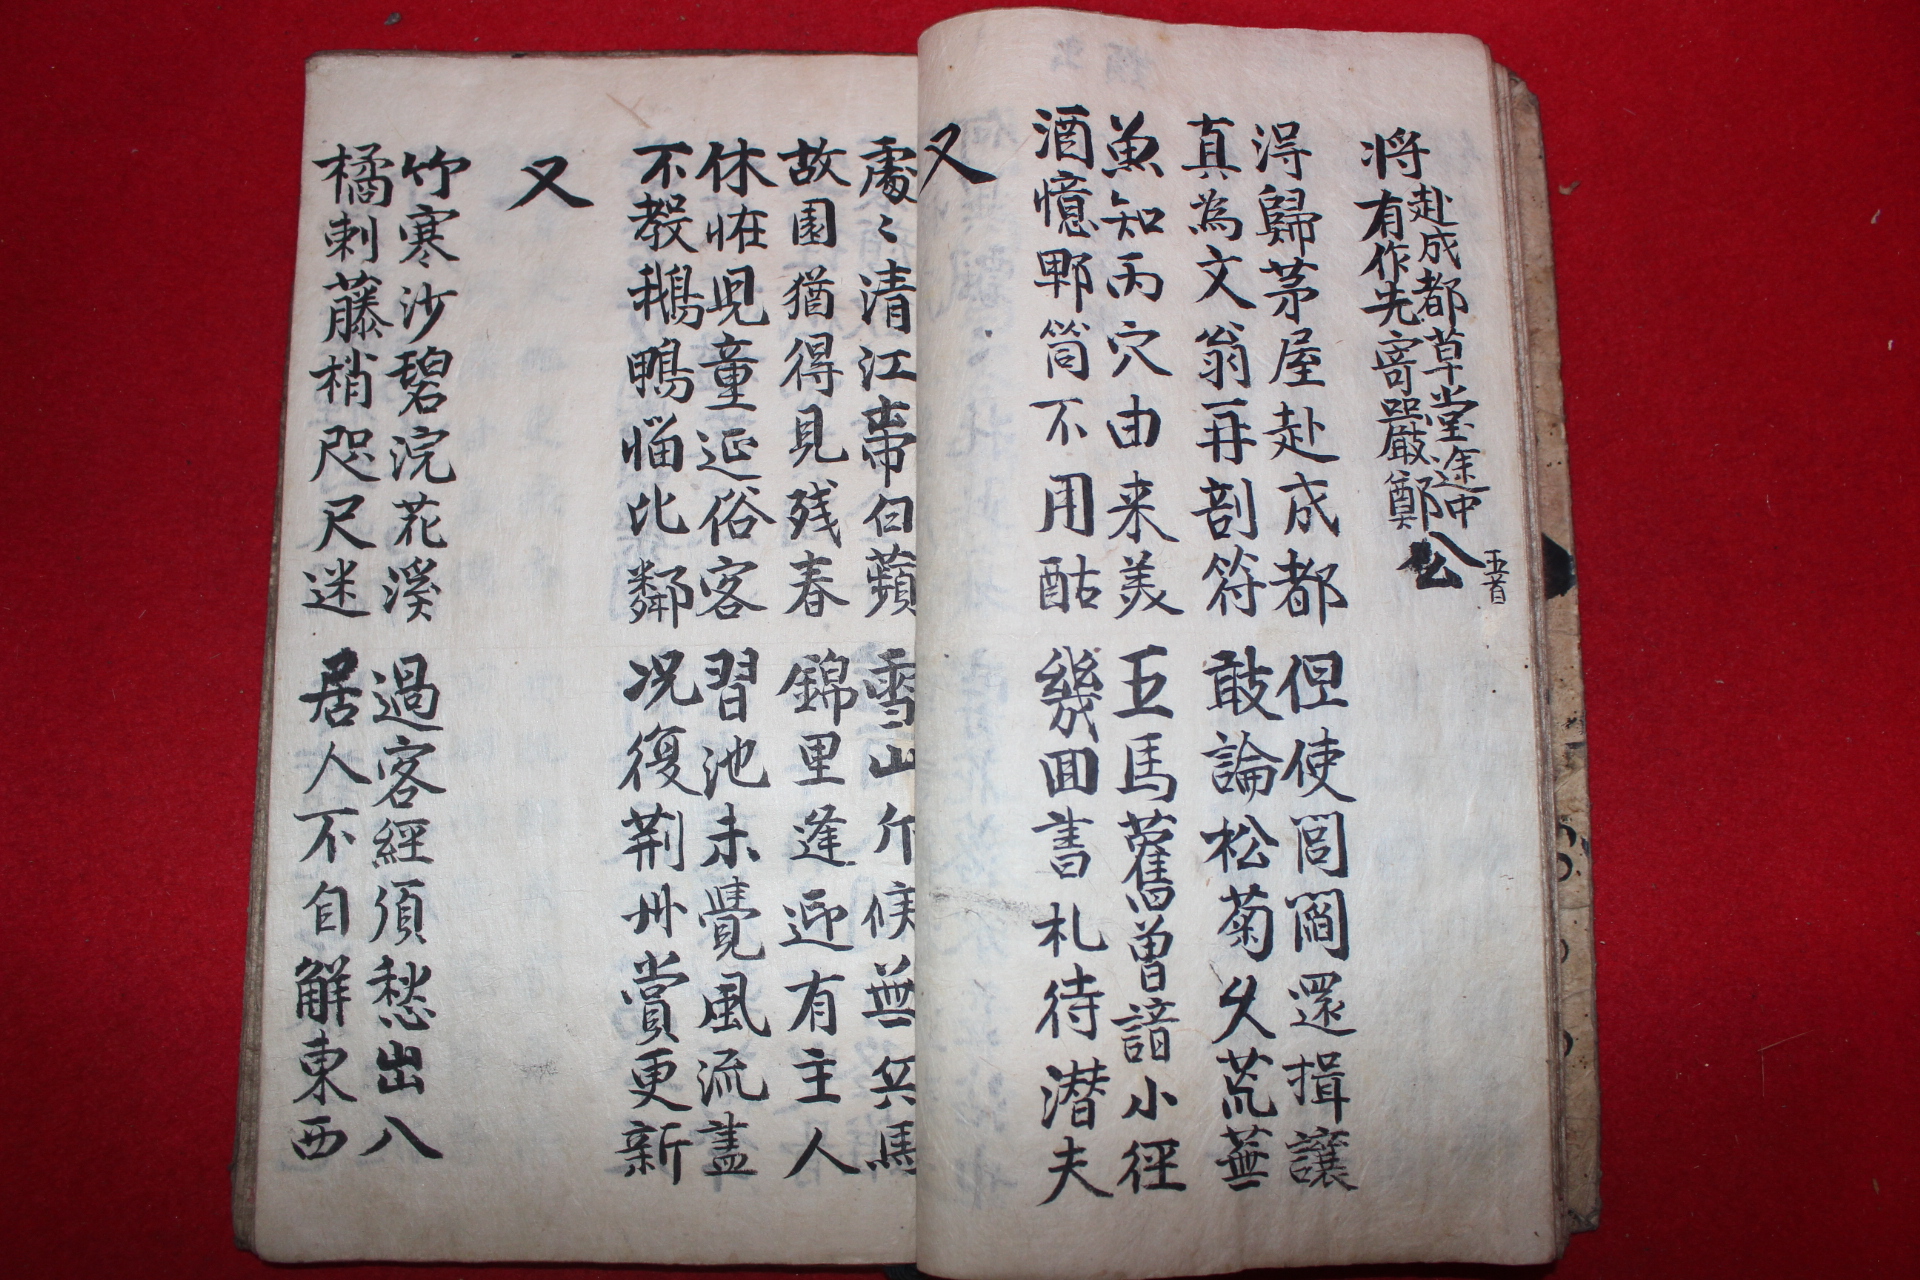 将赴成都草堂途中
有作先寄嚴鄭公 五首
淂歸茅屋赴成都 但使閭閻還揖讓
真為文翁再剖符 敢論松菊久荒蕪
魚知丙穴由来美 五馬舊曾諳小徑
酒憶郫筒不用酤 幾囬書札待潜夫
又
處〻清江帶白蘋 雪山斥候無兵馬
故園猶得見残春 錦里逢迎有主人
休恠児童延俗客 習池未覺風流盡
不教鵝鴨惱比鄰 况復荆州賞更新
又
竹寒沙碧浣花溪 過客經須愁出入
橘刺藤梢咫尺迷 居人不自解東西